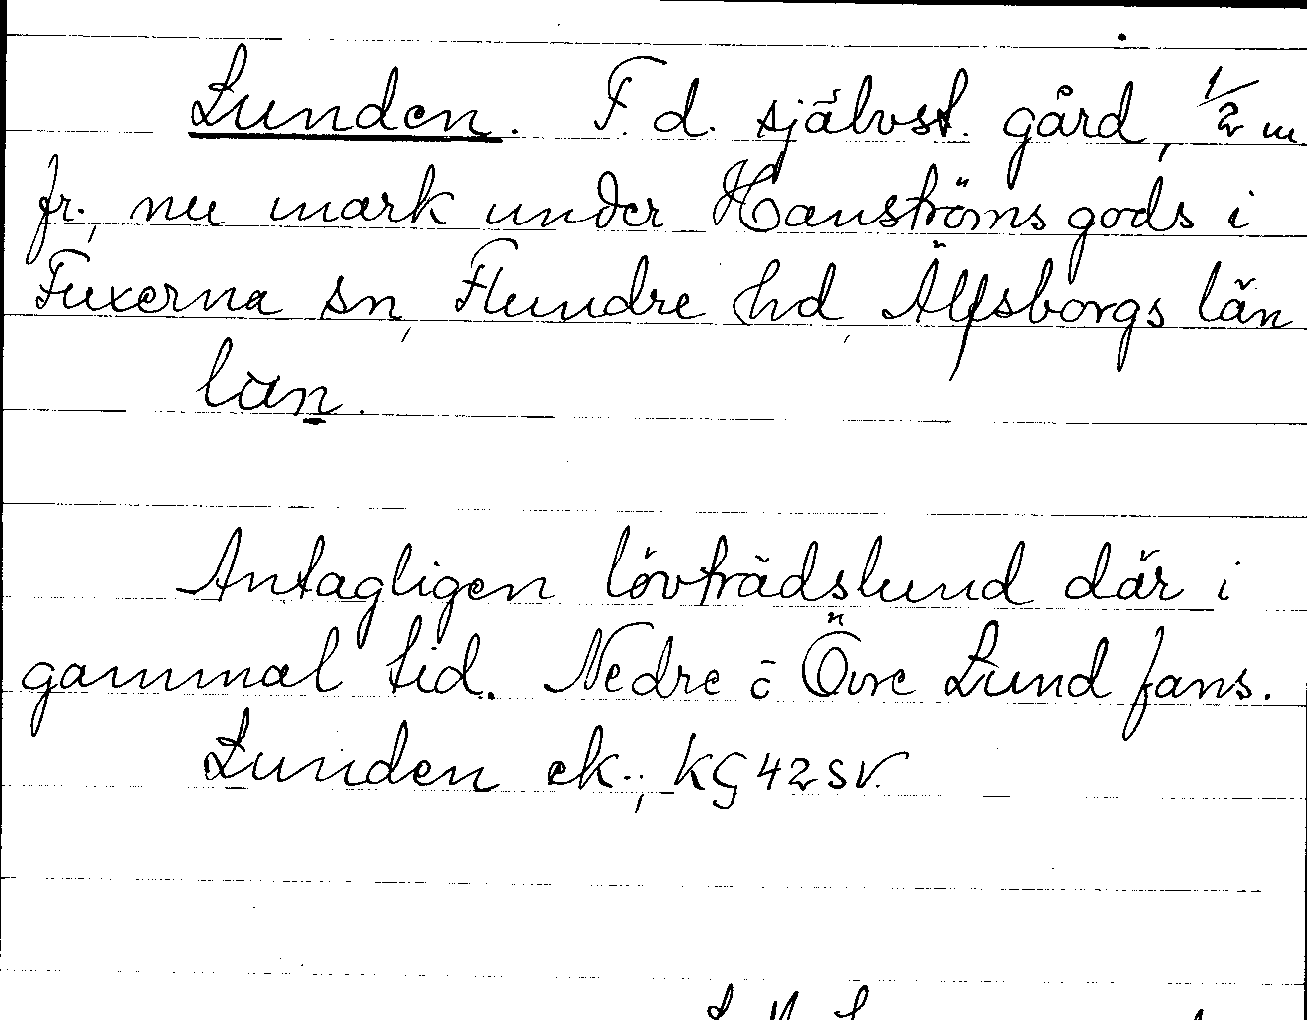 Lunden. F. d. självst. gård, 1/2 m
fr., nu mark under Hanströms gods i
Fuxerna sn, Flundre hd, Älfsborgs län
lun̲.
Antagligen lövträdslund där i
gammal tid. Nedre o Övre Lund fans.
Lunden ek.; KG 42 SV.